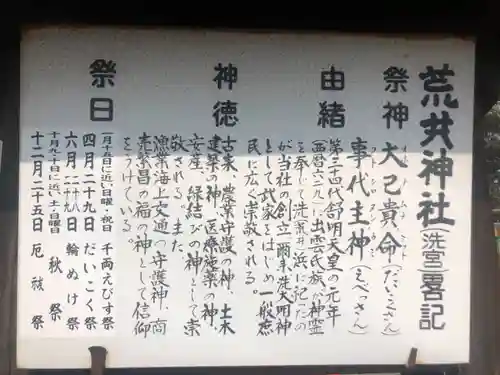 荒井神社(洗宮)畧記
祭神 大己貴命(だいこくさん)
事代主神(えべっさん)
由緒
第三十四代舒明天皇の元年
(西暦六二九)に出雲氏族が神霊
を奉じて洗(荒)井浜に記たの
が当社の創立、爾来荒大明神
として武家をはじめ一般庶
民に広く崇敬される。
神徳
古来、農業守護の神、土木
建築の神、医療薬の神、
安産、縁結びの神として崇
敬される。また、
漁業海上交通の守護神、商
売繁昌の福の神として信仰
をうけている。
祭日
一月十五日に近い日曜・祝日 千両えびす祭
四月二十九日 だいこく祭
六月二十八日 輪ぬけ祭
十月 に近い日曜 秋祭
十二月二十五日 厄祓祭